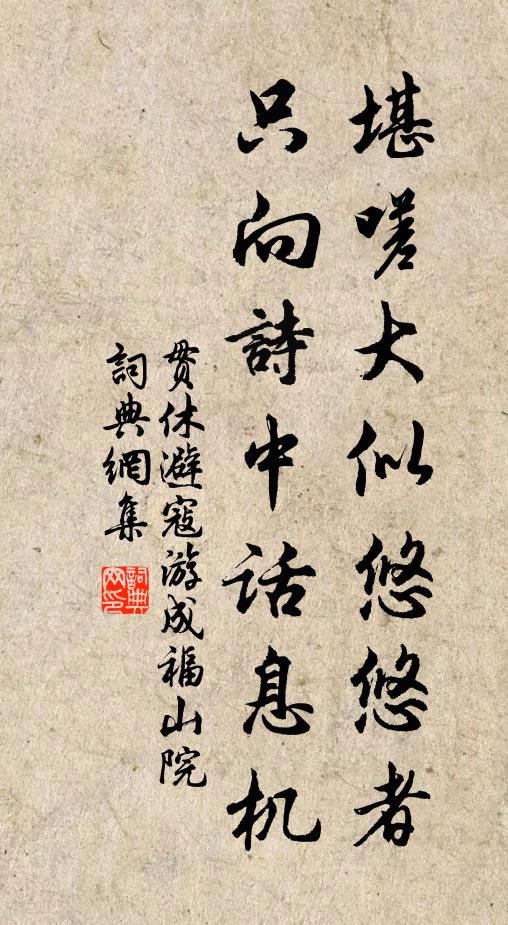 堪嗟大似悠悠者
只向詩中话息机
贯休避寇游成福山院
詞典網集
詞典網印